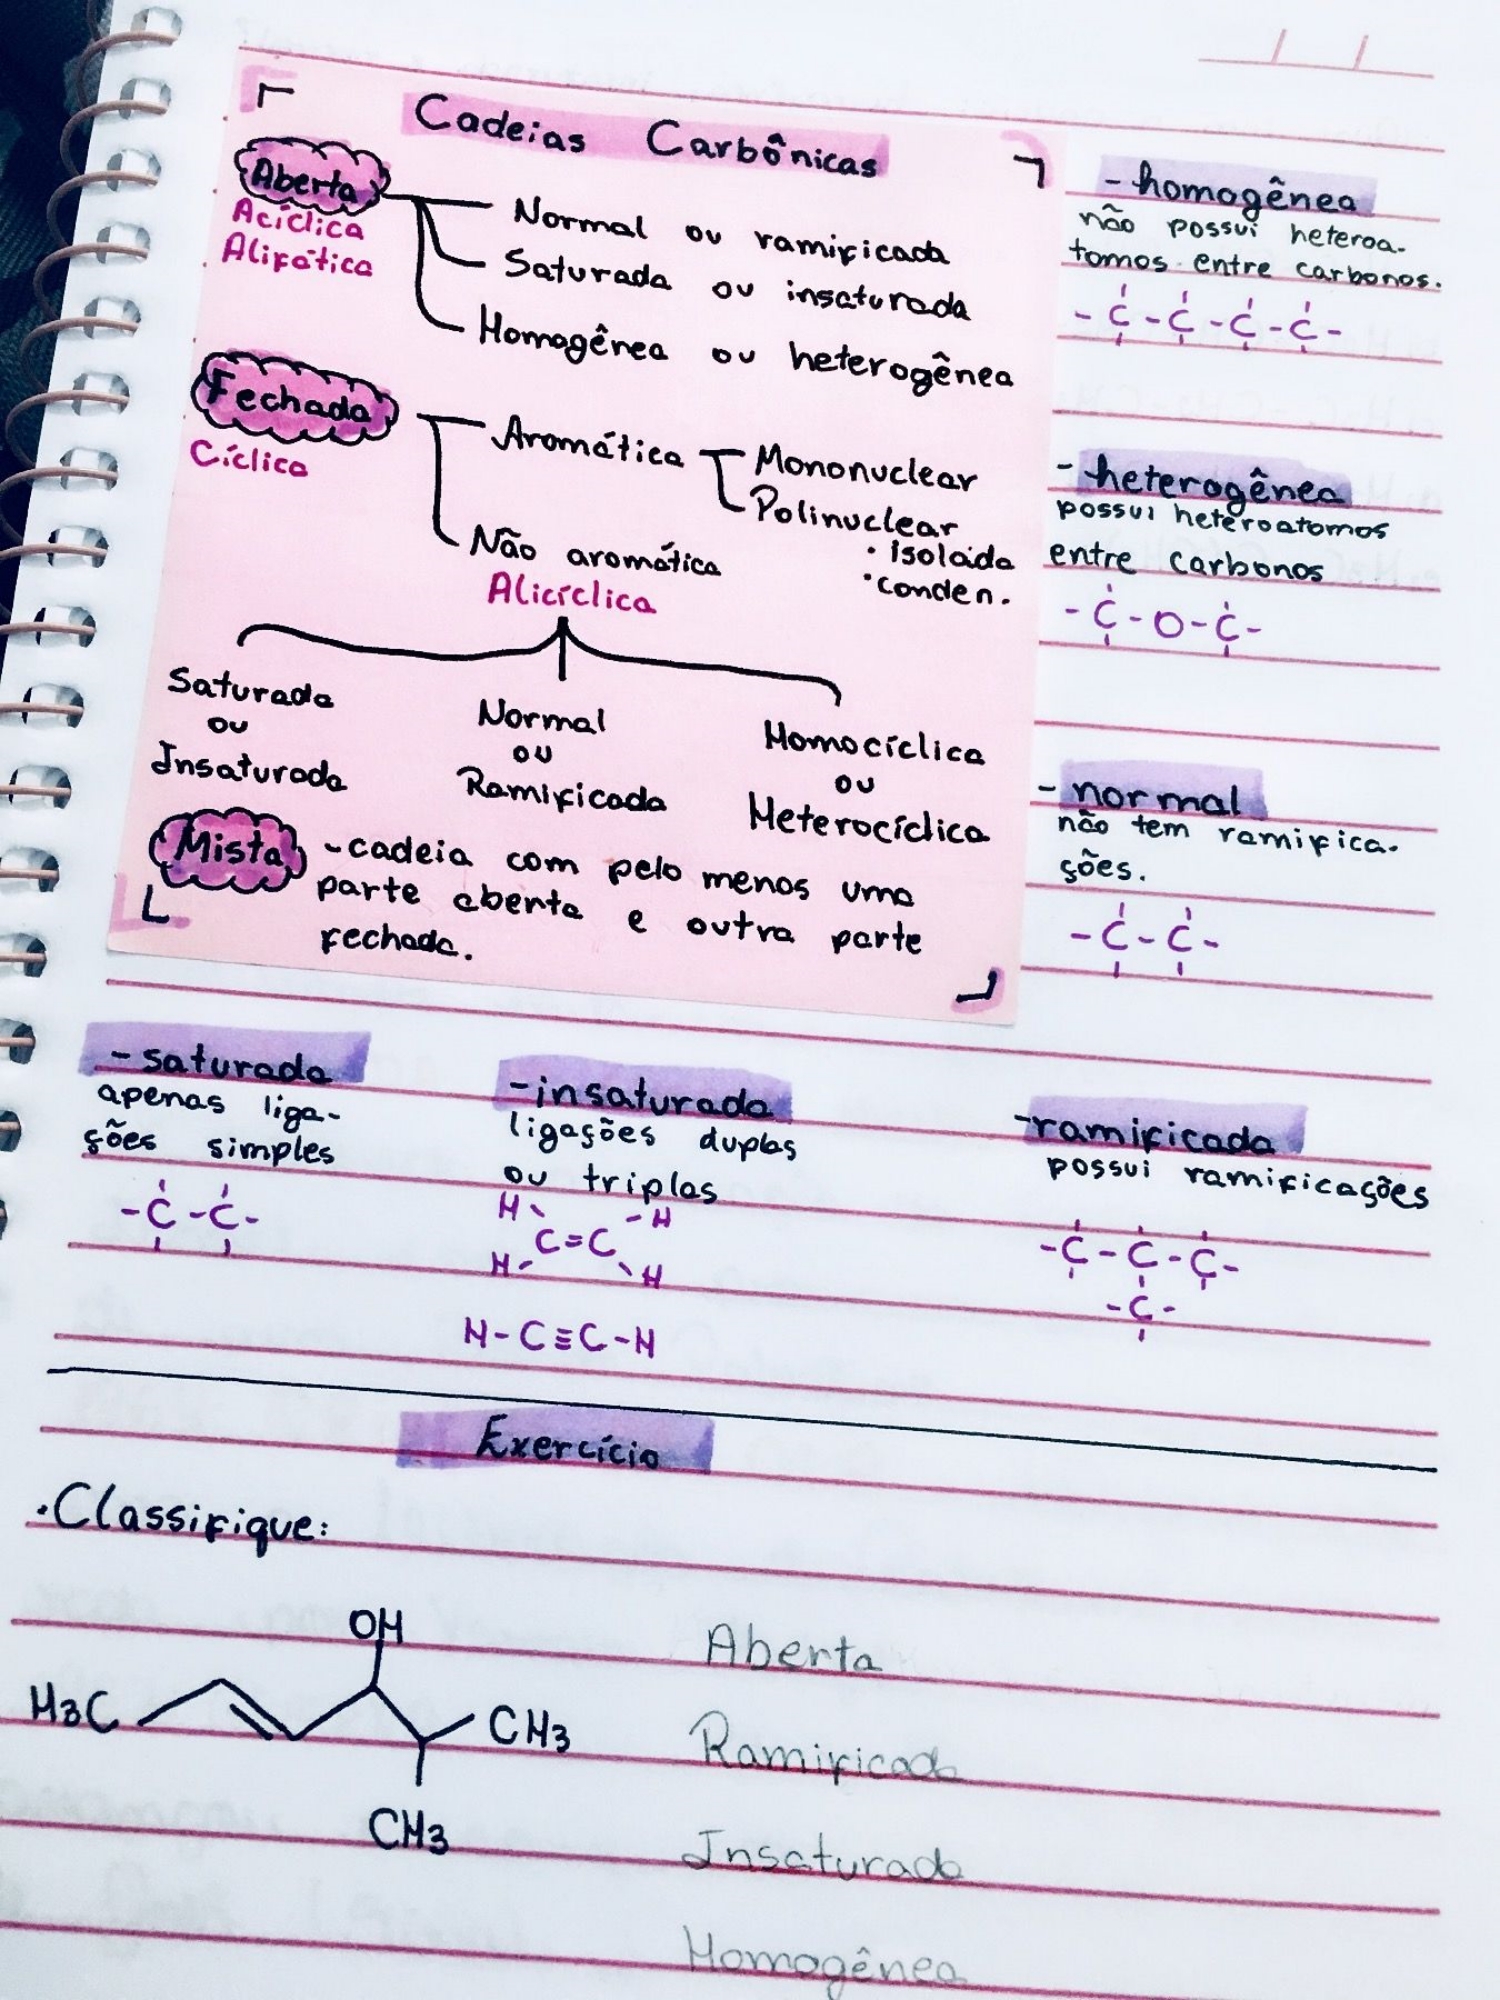 Cadeias Carbônicas
Aberta
Acíclica
Alifática
Normal ou ramificada
Saturada ou insaturada
Homogênea ou heterogênea
Fechada
Cíclica
Aromática
Mononuclear
Polinuclear
• isolada
• conden.
Não aromática
Alicíclica
Saturada
ou
Insaturada
Normal
ou
Ramificada
Homocíclica
ou
Heterocíclica
Mista
-cadeia com pelo menos uma
parte aberta e outra parte
fechada.
- homogênea
não possui heteroa-
tomos entre carbonos.
- C - C - C - C -
- heterogênea
possui heteroatomos
entre carbonos
- C - O - C -
- normal
não tem ramifica-
ções.
- C - C -
- saturada
apenas liga-
ções simples
- C - C -
- insaturada
ligações duplas
ou triplas
H H
C=C
H H
H-C≡C-H
-ramificada
possui ramificações
- C - C - C -
- C -
Exercício
•Classifique:
OH
H3C
CH3
CH3
Aberta
Ramificada
Insaturada
Homogênea